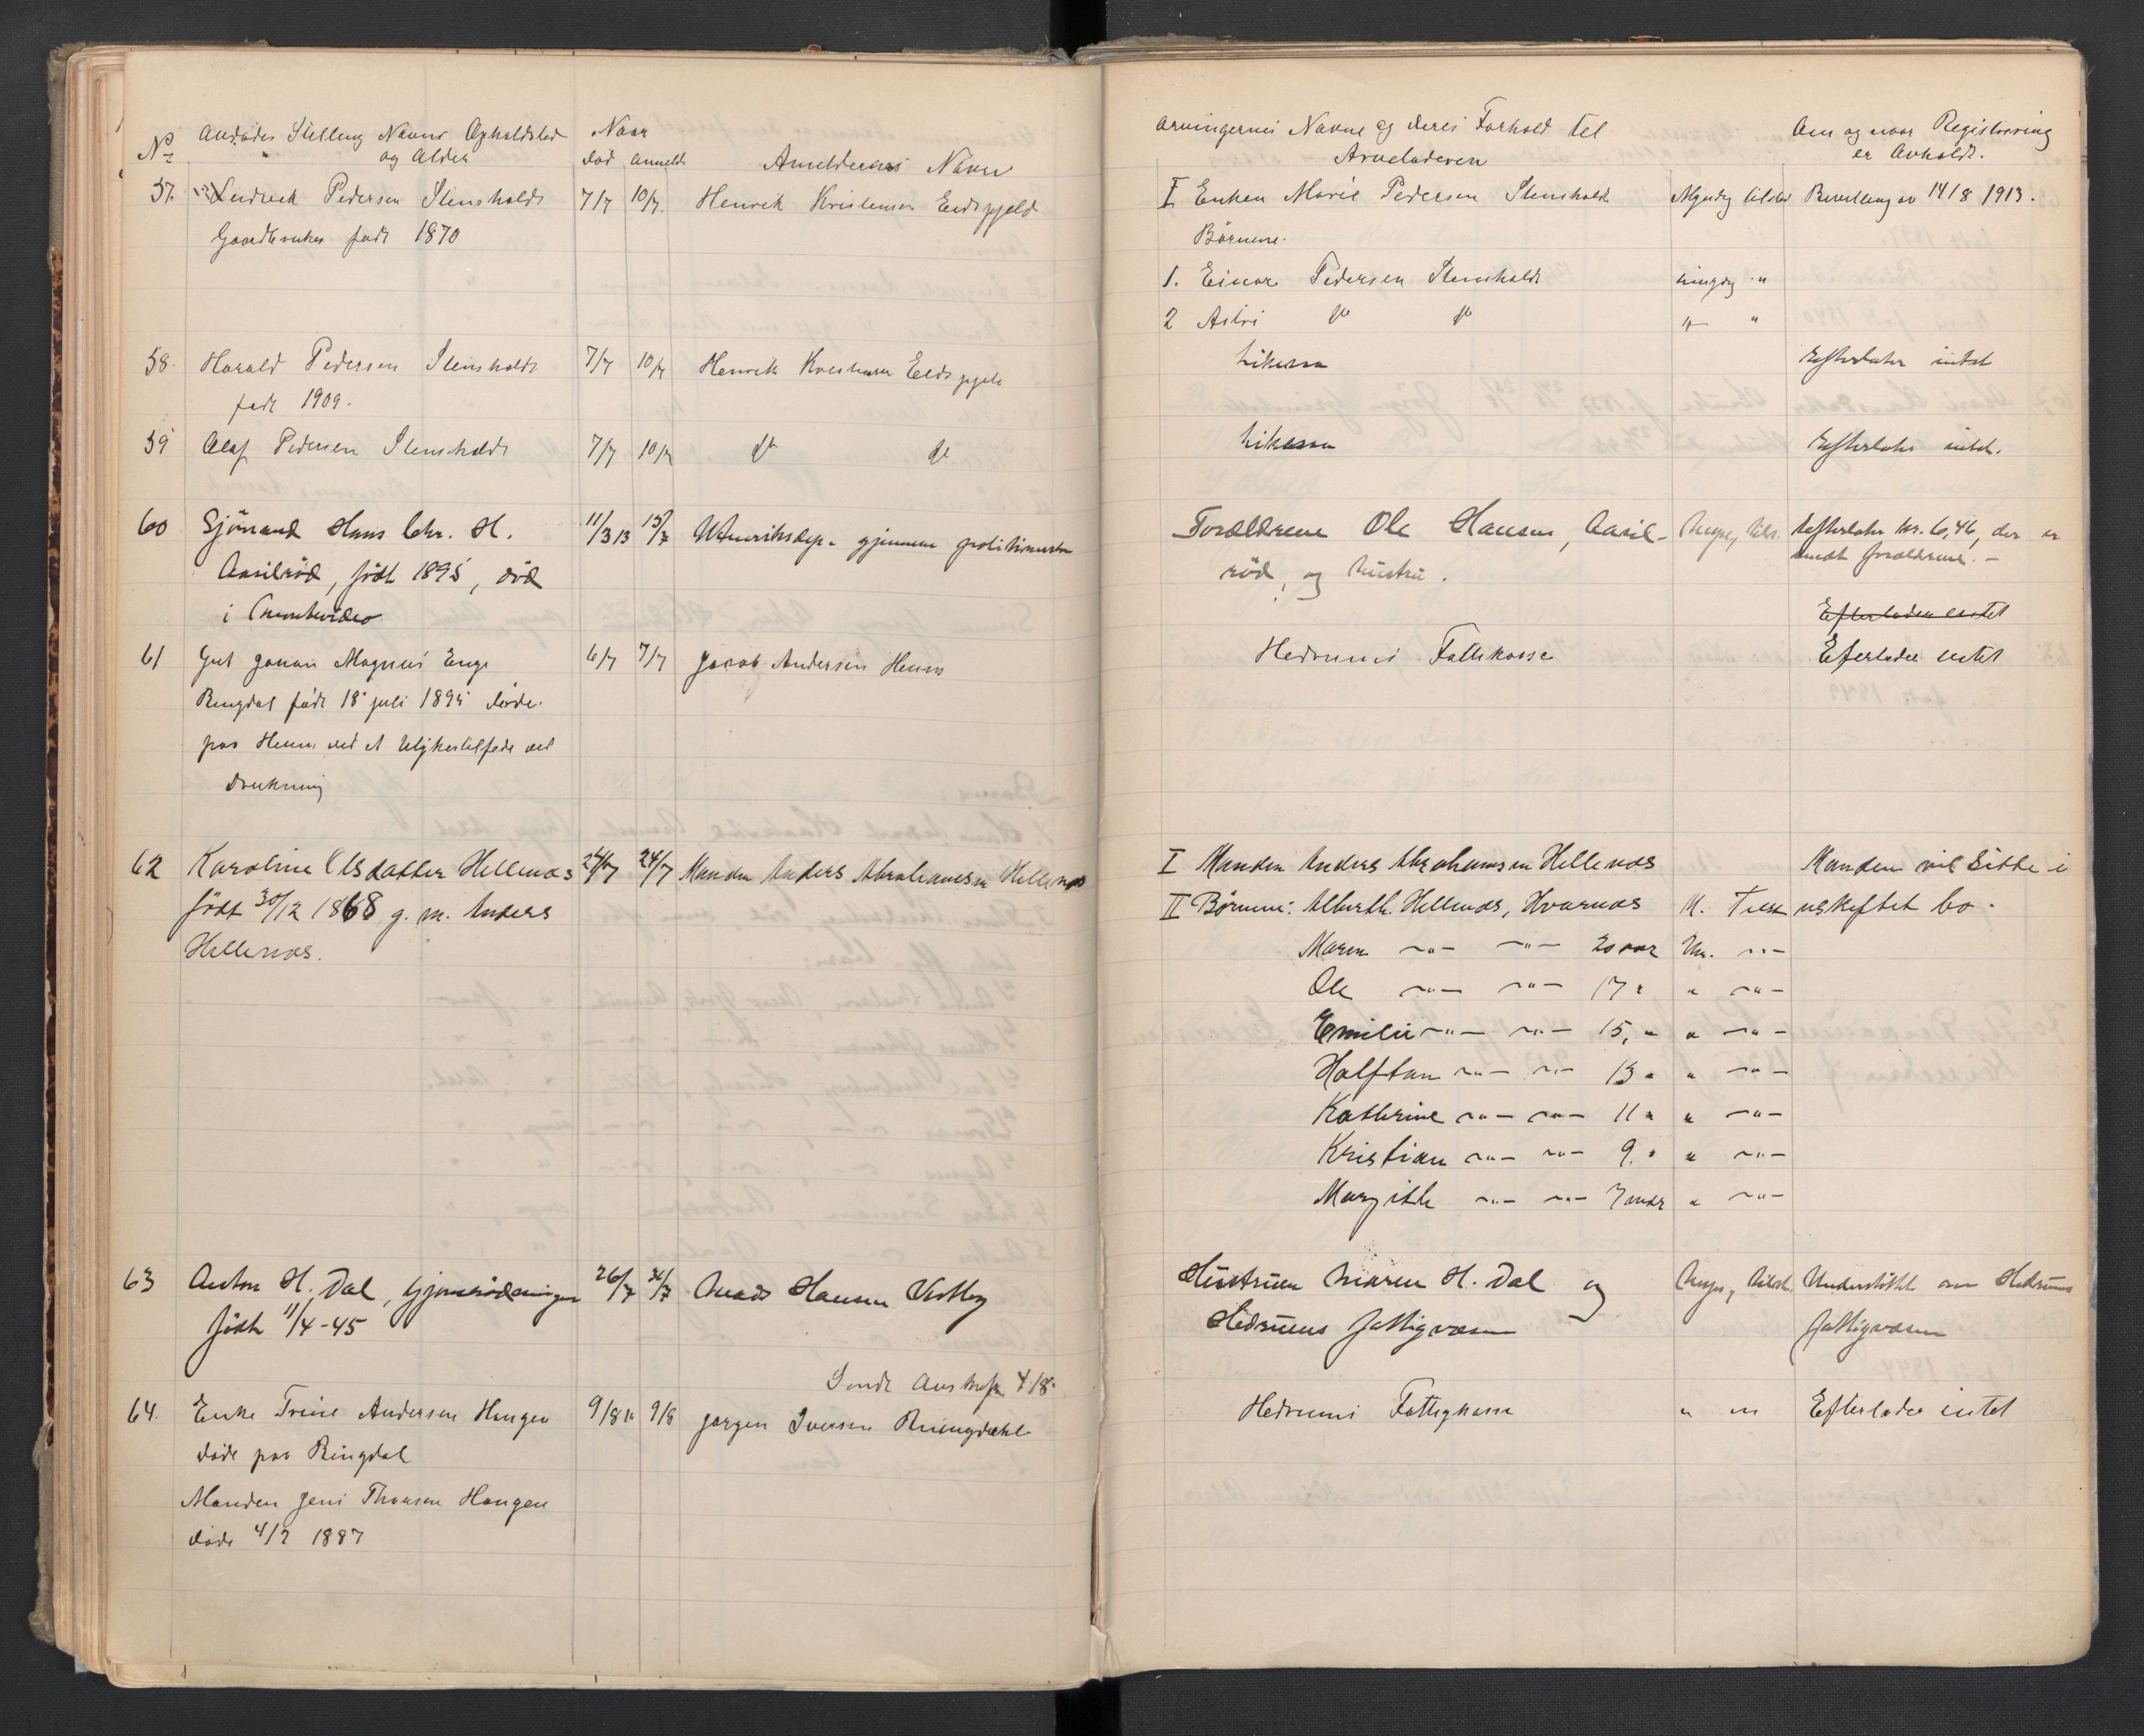 No Avdødes Stilling Navne Opholdsted og Alder Naar død anmeldt Anmeldernes Navn
57. Ludvik Pedersen Stensholdt 7/7 10/7. Henrik Kristensen Eidsfjeld
Gaardbruker født 1870
58. Harald Pedersen Stensholdt 7/7 10/7 Henrik Kristensen Eidsfjeld
født 1909.
59 Olaf Pedersen Stensholdt 7/7 10/7 do do
60 Sjömand Hans Chr. H. 11/3 13 15/7 Utenriksdep. gjennem politimesteren
Aasilröd, født 1895, död
i Montevideo
61 Gut Johan Magnus Enge 6/7 7/7 Jacob Andersen Heum
Ringdal født 18 juli 1895 døde
paa Heum ved et Ulykkestilfede ved
Drukning
62 Karoline Olsdatter Hellenæs 24/7 24/7 Manden Anders Abrahamsen Hellenæs
født 30/12 1868 g. m. Anders
Hellenæs.
63 Anton H. Dal, 26/7 Mads Hansen
född 11/4-45
Sendt 4/8.
64. Enke Trine Andersen Haugen 9/8 9/8 Jørgen Iversen Ringdahl
døde paa Ringdal
Manden Jens Thorsen Haugen
døde 4/2 1887
Arvingernes Navne og deres Forhold til Arveladeren Om og naar Registrering er Avholdt.
I Enken Marie Pedersen Stensholdt Myndig tilsted Bevilling av 14/8 1913.
Börnene.
1. Einar Pedersen Stensholdt umyndig "
2 Astri do do " "
Likesaa Efterlater intet
Likesaa Efterlater intet.
Forældrene Ole Hansen, Aasil- Efterlater kr. 60,46, der er
röd, og hustru. sendt forældrene. -
Efterlader intet
Hedrums Fattikasse Efterlader intet
I Manden Anders Abrahamsen Hellenæs Manden vil sitte i
II Børnene: Hellenæs, Hvarnæs M. uskiftet bo.
Maren -"- -"- 20 aar Um. -"-
Ole -"- -"- 17 " " -"-
Emilie -"- -"- 15, " " -"-
Halftan -"- -"- 13 " " -"-
Kathrine -"- -"- 11 " " -"-
Kristian -"- -"- 9. " " -"-
Margith -"- -"- 7 aar " -"-
Hustruen Maren H. Dal og Understöttet av Hedrums
Hedrums fattigvæsen fattigvæsen
Hedrums Fattigkasse " " Efterlader intet